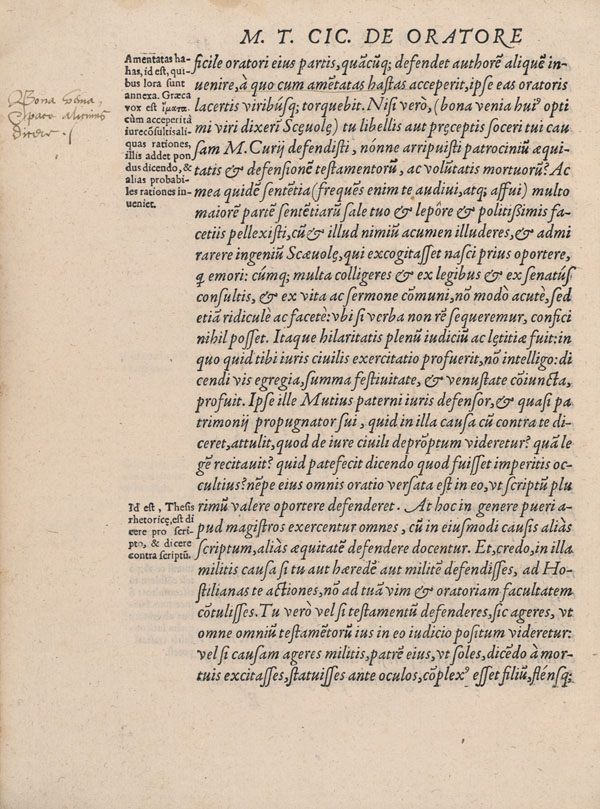 M. T. CIC. DE ORATORE
Amentatas ha-
has, id est, qui-
bus lora sunt
annexa. Græca
vox est
cùm acceperit à
iurecōsultis ali-
quas rationes,
illis addet pon
dus dicendo, &
alias probabi-
les rationes in-
ueniet.
Bona venia,
pace alicuius
dicere.
ficile oratori eius partis, quācūq; defendet authorē aliquē in-
uenire, à quo cum amētatas hastas acceperit, ipse eas oratoris
lacertis viribúsq; torquebit. Nisi verò, (bona venia hui⁹ opti
mi viri dixerī Scęuolę) tu libellis aut pręceptis soceri tui cau
sam M. Curij defendisti, nónne arripuisti patrociniū æqui-
tatis & defensionē testamentorū, ac volūtatis mortuorū? Ac
mea quidē sentētia (frequēs enim te audiui, atq; affui) multo
maiorē partē sentētiarū sale tuo & lepôre & politißimis fa-
cetiis pellexisti, cū & illud nimiū acumen illuderes, & admi
rarere ingeniū Scæuolę, qui excogitasset nasci prius oportere,
q̄ emori: cúmq; multa colligeres & ex legibus & ex senatús
consultis, & ex vita ac sermone cōmuni, nō modò acutè, sed
etiā ridiculè ac facetè: vbi si verba non rē sequeremur, confici
nihil posset. Itaque hilaritatis plenū iudiciū ac lętitiæ fuit: in
quo quid tibi iuris ciuilis exercitatio profuerit, nō intelligo: di
cendi vis egregia, summa festiuitate, & venustate cōiuncta,
profuit. Ipse ille Mutius paterni iuris defensor, & quasi pa
trimonij propugnator sui, quid in illa causa cū contra te di-
ceret, attulit, quod de iure ciuili deprōptum videretur? quā le
gē recitauit? quid patefecit dicendo quod fuisset imperitis oc-
cultius? nēpe eius omnis oratio versata est in eo, vt scriptū plu
rimū valere oportere defenderet. At hoc in genere pueri a-
pud magistros exercentur omnes, cū in eiusmodi causis aliàs
scriptum, aliàs æquitatē defendere docentur. Et, credo, in illa
militis causa si tu aut hæredē aut militē defendisses, ad Ho-
stilianas te actiones, nō ad tuā vim & oratoriam facultatem
cōtulisses. Tu verò vel si testamentū defenderes, sic ageres, vt
omne omniū testamētorū ius in eo iudicio positum videretur:
vel si causam ageres militis, patrē eius, vt soles, dicēdo à mor-
tuis excitasses, statuisses ante oculos, cōplex⁹ esset filiū, flēnsq;
Id est, Thesis
rhetoricę, est di
cere pro scri-
pto, & dicere
contra scriptū.